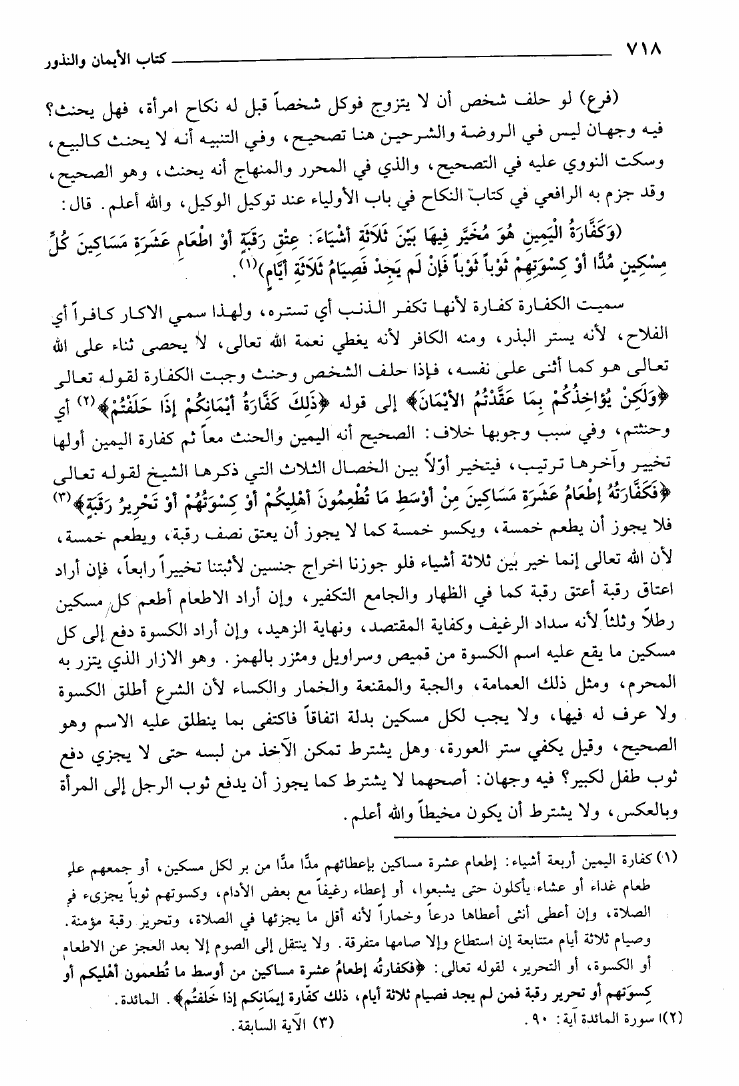 ٧١٨ كتاب الأيمان والنذور
(فرع) لو حلف شخص أن لا يتزوج فوكل شخصاً قبل له نكاح امرأة، فهل يحنث؟
فيه وجهان ليس في الروضة والشرحين هنا تصحيح، وفي التنبيه أنه لا يحنث كالبيع،
وسكت النووي عليه في التصحيح، والذي في المحرر والمنهاج أنه يحنث، وهو الصحيح،
وقد جزم به الرافعي في كتاب النكاح في باب الأولياء عند توكيل الوكيل، والله أعلم. قال:
(وَكَفَّارَةُ الْيَمِينِ هُوَ مُخَيَّر فِيهَا بَيْنَ ثَلَاثَةِ أَشْيَاءَ: عِتْقِ رَقَبَةٍ أَوْ اطْعَامِ عَشَرَةِ مَسَاكِينَ كُلِّ
مِسْكِينٍ مُدًّا أَوْ كِسْوَتِهِمْ ثَوْباً ثَوْباً فَإِنْ لَم يَجِدْ فَصِيَامُ ثَلَاثَةِ أَيَّامٍ)(١).
سميت الكفارة كفارة لأنها تكفر الذنب أي تستره، ولهذا سمي الاكار كافراً أي
الفلاح، لأنه يستر البذر، ومنه الكافر لأنه يغطي نعمة الله تعالى، لا يحصى ثناء على الله
تعالى هو كما أثنى على نفسه، فإذا حلف الشخص وحنث وجبت الكفارة لقوله تعالى
﴿وَلَكِنْ يُؤَاخِذُكُمْ بِمَا عَقَّدْتُمُ الأَيْمَانَ﴾ إلى قوله ﴿ذَلِكَ كَفَّارَةُ أَيْمَانِكُمْ إِذَا حَلَفْتُمْ﴾(٢) أي
وحنثتم، وفي سبب وجوبها خلاف: الصحيح أنه اليمين والحنث معاً ثم كفارة اليمين أولها
تخيير وآخرها ترتيب، فيتخير أوّلاً بين الخصال الثلاث التي ذكرها الشيخ لقوله تعالى
﴿فَكَفَّارَتُهُ إِطْعَامُ عَشَرَةِ مَسَاكِينَ مِنْ أَوْسَطِ مَا تُطْعِمُونَ أَهْلِيكُمْ أَوْ كِسْوَتُهُمْ أَوْ تَحْرِيرُ رَقَبَةٍ﴾(٣)
فلا يجوز أن يطعم خمسة، ويكسو خمسة كما لا يجوز أن يعتق نصف رقبة، ويطعم خمسة،
لأن الله تعالى إنما خير بين ثلاثة أشياء فلو جوزنا اخراج جنسين لأثبتنا تخييراً رابعاً، فإن أراد
اعتاق رقبة أعتق رقبة كما في الظهار والجامع التكفير، وإن أراد الاطعام أطعم كل مسكين
رطلاً وثلثاً لأنه سداد الرغيف وكفاية المقتصد، ونهاية الزهيد، وإن أراد الكسوة دفع إلى كل
مسكين ما يقع عليه اسم الكسوة من قميص وسراويل ومئزر بالهمز. وهو الازار الذي يتزر به
المحرم، ومثل ذلك العمامة، والجبة والمقنعة والخمار والكساء لأن الشرع أطلق الكسوة
ولا عرف له فيها، ولا يجب لكل مسكين بدلة اتفاقاً فاكتفى بما ينطلق عليه الاسم وهو
الصحيح، وقيل يكفي ستر العورة، وهل يشترط تمكن الآخذ من لبسه حتى لا يجزي دفع
ثوب طفل لكبير؟ فيه وجهان: أصحهما لا يشترط كما يجوز أن يدفع ثوب الرجل إلى المرأة
وبالعكس، ولا يشترط أن يكون مخيطاً والله أعلم.
(١) كفارة اليمين أربعة أشياء: إطعام عشرة مساكين بإعطائهم مدًّا مدًّا من بر لكل مسكين، أو جمعهم على
طعام غداء أو عشاء يأكلون حتى يشبعوا، أو إعطاء رغيفاً مع بعض الأدام، وكسوتهم ثوباً يجزىء في
الصلاة، وإن أعطى أنثى أعطاها درعاً وخماراً لأنه أقل ما يجزئها في الصلاة، وتحرير رقبة مؤمنة.
وصيام ثلاثة أيام متتابعة إن استطاع وإلا صامها متفرقة. ولا ينتقل إلى الصوم إلا بعد العجز عن الاطعام
أو الكسوة، أو التحرير، لقوله تعالى: ﴿فكفارتُه إطعامُ عشرة مساكين من أوسط ما تُطعمون أهْليكم أو
كِسوَتهم أو تحرير رقبة فمن لم يجد فصيام ثلاثة أيام، ذلك كفّارة إيمَانكم إذا حَلفتُم﴾. المائدة.
(٢)ا سورة المائدة آية: ٩٠. (٣) الآية السابقة.